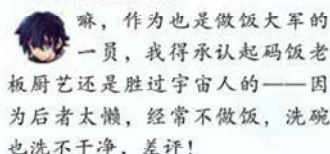 嘛，作为也是做饭大军的
一员，我得承认起码饭老
板厨艺还是胜过宇宙人的——因
为后者太懒，经常不做饭，洗碗
也洗不干净，差评！